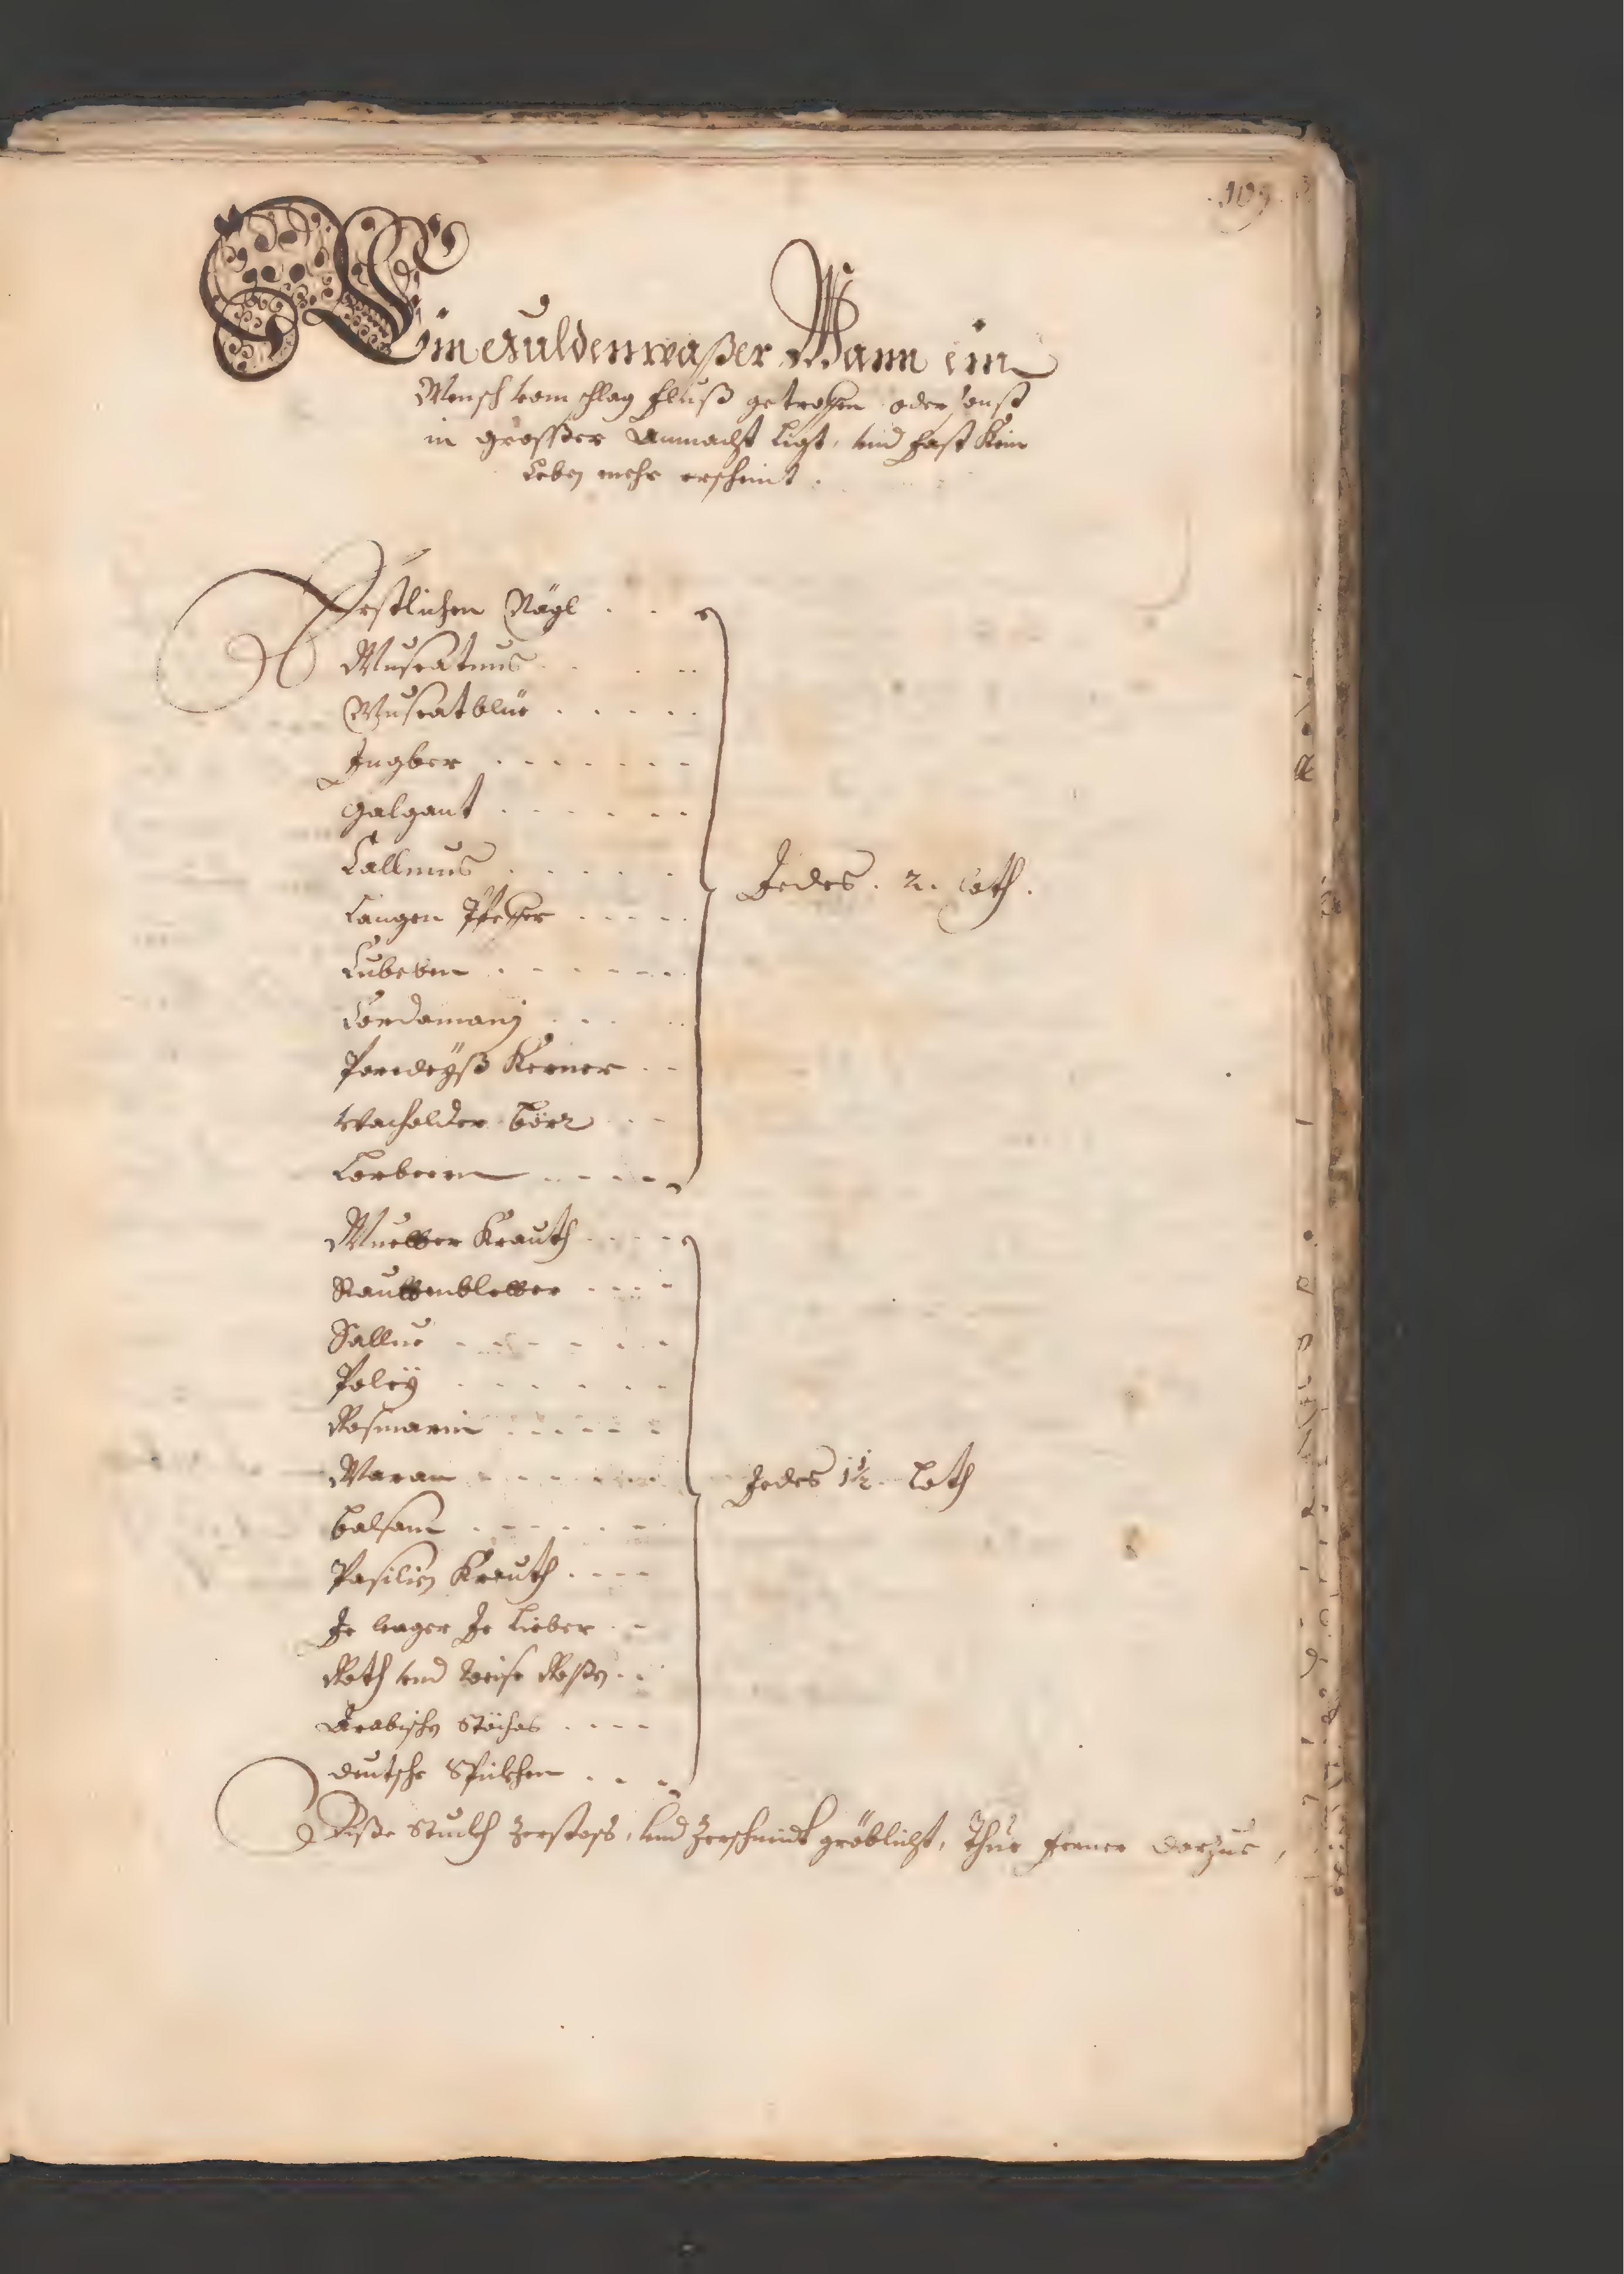 109.
Ein Guldenwaßer Wann ein
Mensch vom schlag fluß getroffen oder sonst
in grosser Anmacht ligt, vnd fast Kein
Leben mehr erscheint.
Erstlichen Nägl . . .
Muscatnus . . .
Muscatblüe . . . . .
Ingber . . . . . . .
Galgant . . . . . .
Callmus . . . . .
Langen Pfeffer . . . . .
Cubeben . . . . . .
Cordamanj . . . .
Paredeyß Kerner . .
Wacholder Bör . .
Lorbeern . . . . .
Jedes . 2 . Loth .
Muetter Krauth . . . .
Rauttenbletter . . . .
Sallue . . . . . .
Poleÿ . . . . . .
Rosmarin . . . . .
Maran . . . . . .
Balsam . . . . . .
Pasilien Krauth . . . .
Je lenger Je Lieber . .
Roth vnd Weise Roßen . .
Arabischen Stöchas . . . .
deutsche Spickhen . . .
Jedes 1½ . Loth
Diße Stuckh Zerstoss, vnd Zerschneidt gröblicht, Thue ferner darzue,